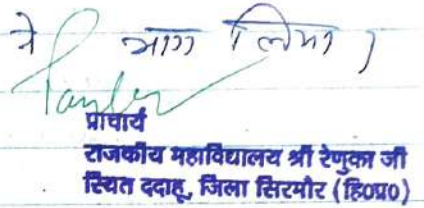 ने भाग लिया।
प्राचार्य
राजकीय महाविद्यालय श्री रेणुका जी
स्थित ददाहू, जिला सिरमौर (हि०प्र०)